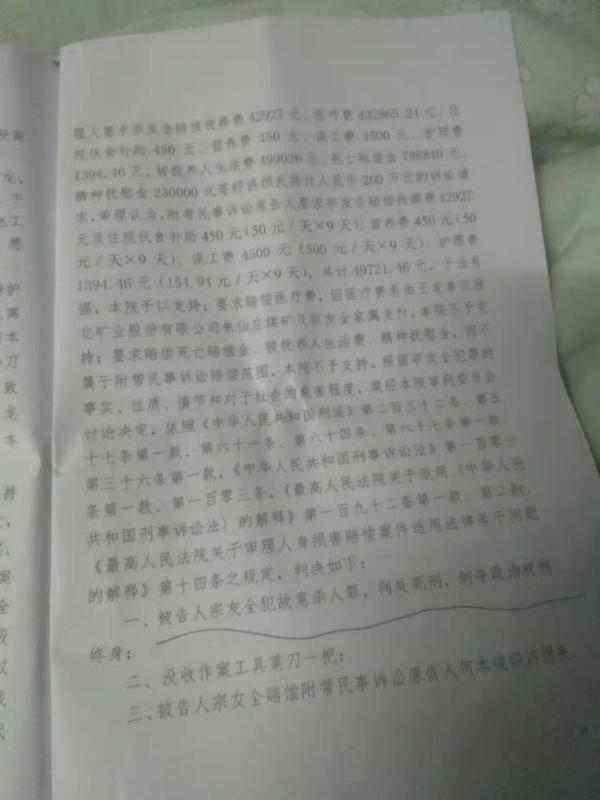 理人要求宗友全赔偿丧葬费42927元、医疗费432865.24元、住
院伙食补助450元、营养费450元、误工费4500元、护理费
1394.46元,被抚养人生活费499026元、死亡赔偿金788840元、
精神抚慰金230000元等经济损失共计人民币200万元的诉讼请
求,审理认为,附带民事诉讼原告人要求宗友全赔偿丧葬费42927
元及住院伙食补助450元(50元/天×9天)、营养费450元(50
元/天×9天)、误工费4500元(500元/天×9天)、护理费
1394.46元(154.94元/天×9天),共计49721.46元,于法有
据,本院予以支持;要求赔偿医疗费,因医疗费系由王龙单位淮
北矿业股份有限公司朱仙庄煤矿及宗友全家属支付,本院不予支
持;要求赔偿死亡赔偿金、被抚养人生活费、精神抚慰金,因不
属于附带民事诉讼赔偿范围,本院不予支持。根据宗友全犯罪的
事实、性质、情节和对于社会的危害程度,案经本院审判委员会
讨论决定,依照《中华人民共和国刑法》第二百三十二条、第五
十七条第一款、第六十一条、第六十四条、第六十七条第一款、
第三十六条第一款,《中华人民共和国刑事诉讼法》第一百零一
条第一款、第一百零三条,《最高人民法院关于适用〈中华人民
共和国刑事诉讼法〉的解释》第一百九十二条第一款、第二款、
《最高人民法院关于审理人身损害赔偿案件适用法律若干问题
的解释》第十四条之规定,判决如下:
一、被告人宗友全犯故意杀人罪,判处死刑,剥夺政治权利
终身;
二、没收作案工具菜刀一把;
三、被告人宗友全赔偿附带民事诉讼原告人何本俊经济损失